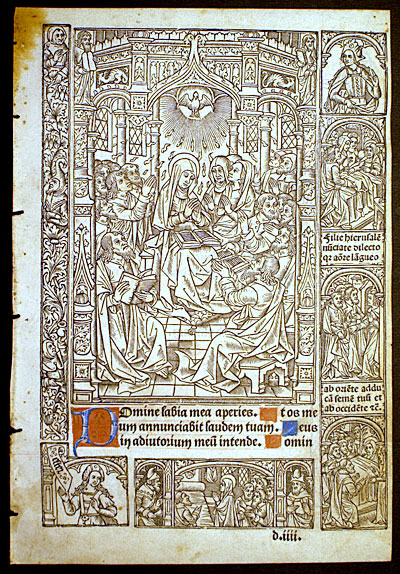 Domine labia mea aperies. Et os me
um annunciabit laudem tuam. Deus
in adiutorium meū intende. Domin
Filie hierusalē
nūciate dilecto
qr aōre lāgueo
ab oriēte addu
cā semē tuū et
ab occidēte rē.
d.iiii.